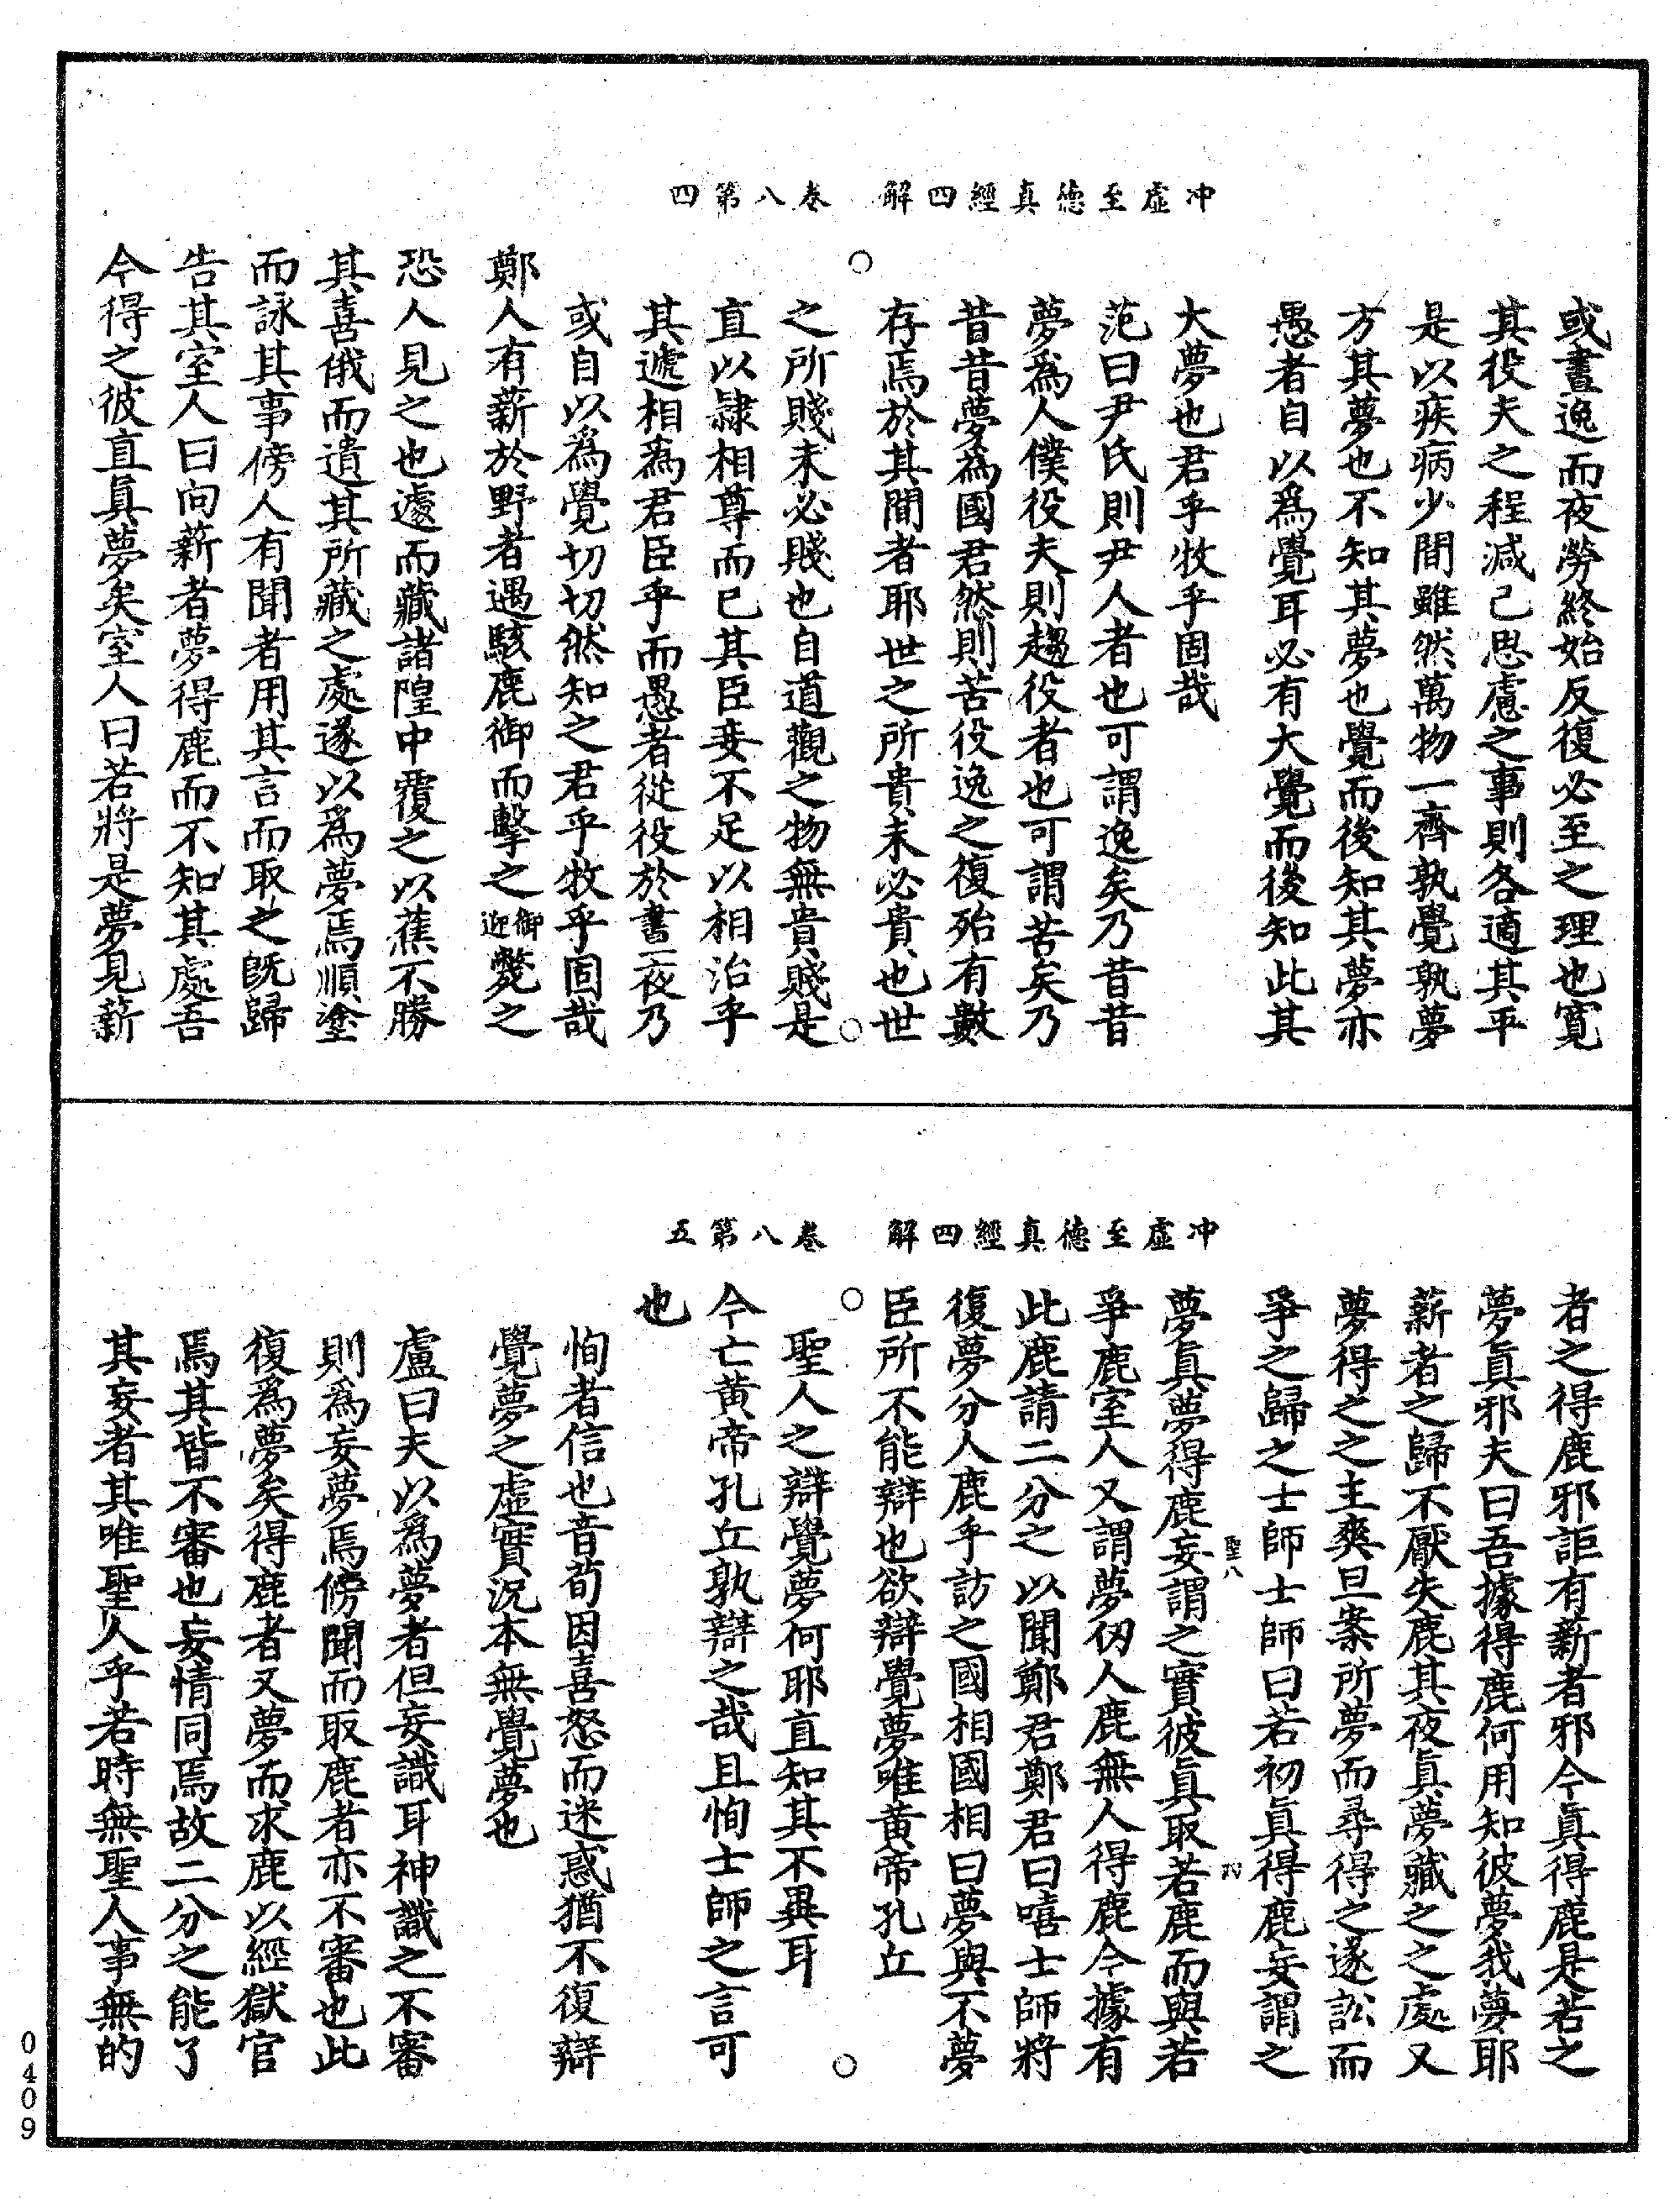 冲虛至德真經四解　卷八第四
或晝逸而夜勞終始反復必至之理也寬
其役夫之程減己思慮之事則各適其平
是以疾病少間雖然萬物一齊孰覺孰夢
方其夢也不知其夢也覺而後知其夢亦
愚者自以爲覺耳必有大覺而後知此其
大夢也君乎牧乎固哉
范曰尹氏則尹人者也可謂逸矣乃昔昔
夢爲人僕役夫則趨役者也可謂苦矣乃
昔昔夢爲國君然則苦役逸之復殆有數
存焉於其間者耶世之所貴未必貴也世
之所賤未必賤也自道觀之物無貴賤是
直以隷相尊而已其臣妾不足以相治乎
其遞相爲君臣乎而愚者從役於晝夜乃
或自以爲覺切切然知之君乎牧乎固哉
鄭人有薪於野者遇駭鹿御而擊之御迎斃之
恐人見之也遽而藏諸隍中覆之以蕉不勝
其喜俄而遺其所藏之處遂以爲夢焉順塗
而詠其事傍人有聞者用其言而取之旣歸
告其室人曰向薪者夢得鹿而不知其處吾
今得之彼直眞夢矣室人曰若將是夢見薪
冲虛至德真經四解　卷八第五
者之得鹿邪詎有薪者邪今眞得鹿是若之
夢眞邪夫曰吾據得鹿何用知彼夢我夢耶
薪者之歸不厭失鹿其夜眞夢藏之之處又
夢得之之主爽旦案所夢而尋得之遂訟而
爭之歸之士師士師曰若初眞得鹿妄謂之
聖八
夢眞夢得鹿妄謂之實彼眞取若鹿而與若
爭鹿室人又謂夢仞人鹿無人得鹿今據有
此鹿請二分之以聞鄭君鄭君曰嘻士師將
復夢分人鹿乎訪之國相國相曰夢與不夢
臣所不能辯也欲辯覺夢唯黃帝孔丘
聖人之辯覺夢何耶直知其不異耳
今亡黃帝孔丘孰辯之哉且恂士師之言可
也
恂者信也音荀因喜怒而迷惑猶不復辯
覺夢之虛實況本無覺夢也
盧曰夫以爲夢者但妄識耳神識之不審
則爲妄夢焉傍聞而取鹿者亦不審也此
復爲夢矣得鹿者又夢而求鹿以經獄官
焉其皆不審也妄情同焉故二分之能了
其妄者其唯聖人乎若時無聖人事無的
0409